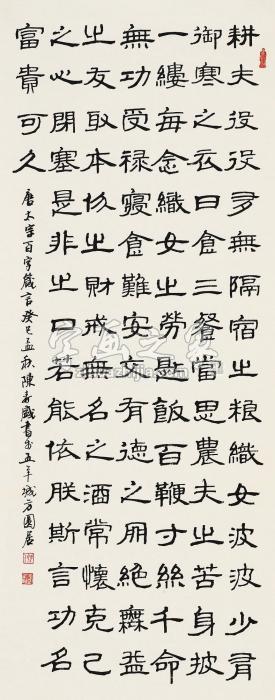 耕夫役役多無隔宿之粮織女波波少有
御寒之衣日食三餐當思農夫之苦身披
一縷每念織女之勞匙飯百鞭寸絲千命
無功受禄寢食難安交有德之朋絕無益
之友取本份之財戒無名之酒常懷克己
之心閉塞是非之口若能依朕斯言功名
富貴可久
唐太宗百字箴言癸巳孟秋陳盛書於五羊城方圓居
字画之家